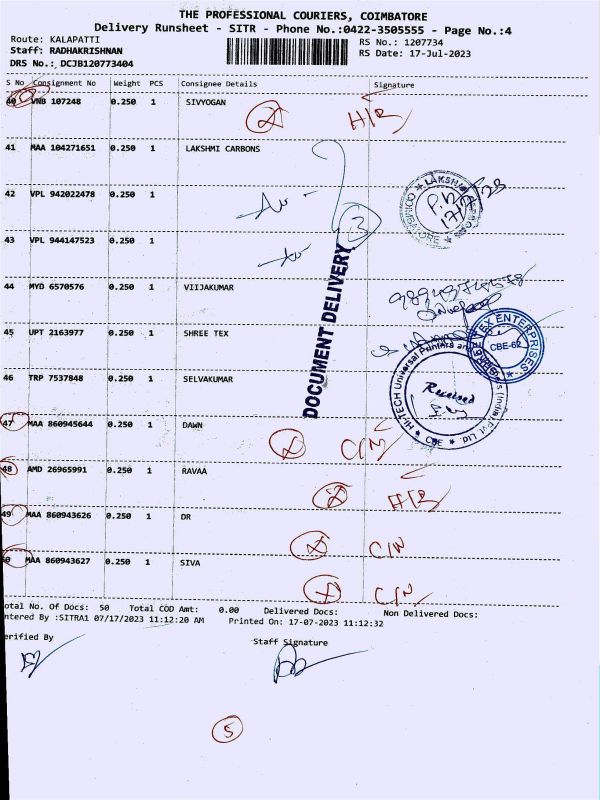 THE PROFESSIONAL COURIERS, COIMBATORE
Delivery Runsheet - SITR - Phone No.:0422-3505555 - Page No.:4
Route: KALAPATTI
RS No.: 1207734
Staff: RADHAKRISHNAN
RS Date: 17-Jul-2023
DRS No.: DCJB120773404
S No Consignment No Weight PCS Consignee Details Signature
40 VNB 107248 0.250 1 SIVYOGAN
H/R
41 MAA 104271651 0.250 1 LAKSHMI CARBONS
42 VPL 942022478 0.250 1
P.B
17/7/23
3
43 VPL 944147523 0.250 1
DOCUMENT DELIVERY
44 MYD 6570576 0.250 1 VIIJAKUMAR
45 UPT 2163977 0.250 1 SHREE TEX
TEX ENTERPRISES
CBE-62
46 TRP 7537848 0.250 1 SELVAKUMAR
HI-TECH Universal Printers and
(India) Pvt Ltd.
CBE
Received
47 MAA 860945644 0.250 1 DAWN
C/N
48 AMD 26965991 0.250 1 RAVAA
H/R
49 MAA 860943626 0.250 1 DR
C/N
50 MAA 860943627 0.250 1 SIVA
C/N
otal No. Of Docs: 50 Total COD Amt: 0.00 Delivered Docs: Non Delivered Docs:
ntered By :SITRA1 07/17/2023 11:12:20 AM Printed On: 17-07-2023 11:12:32
erified By
Staff Signature
5